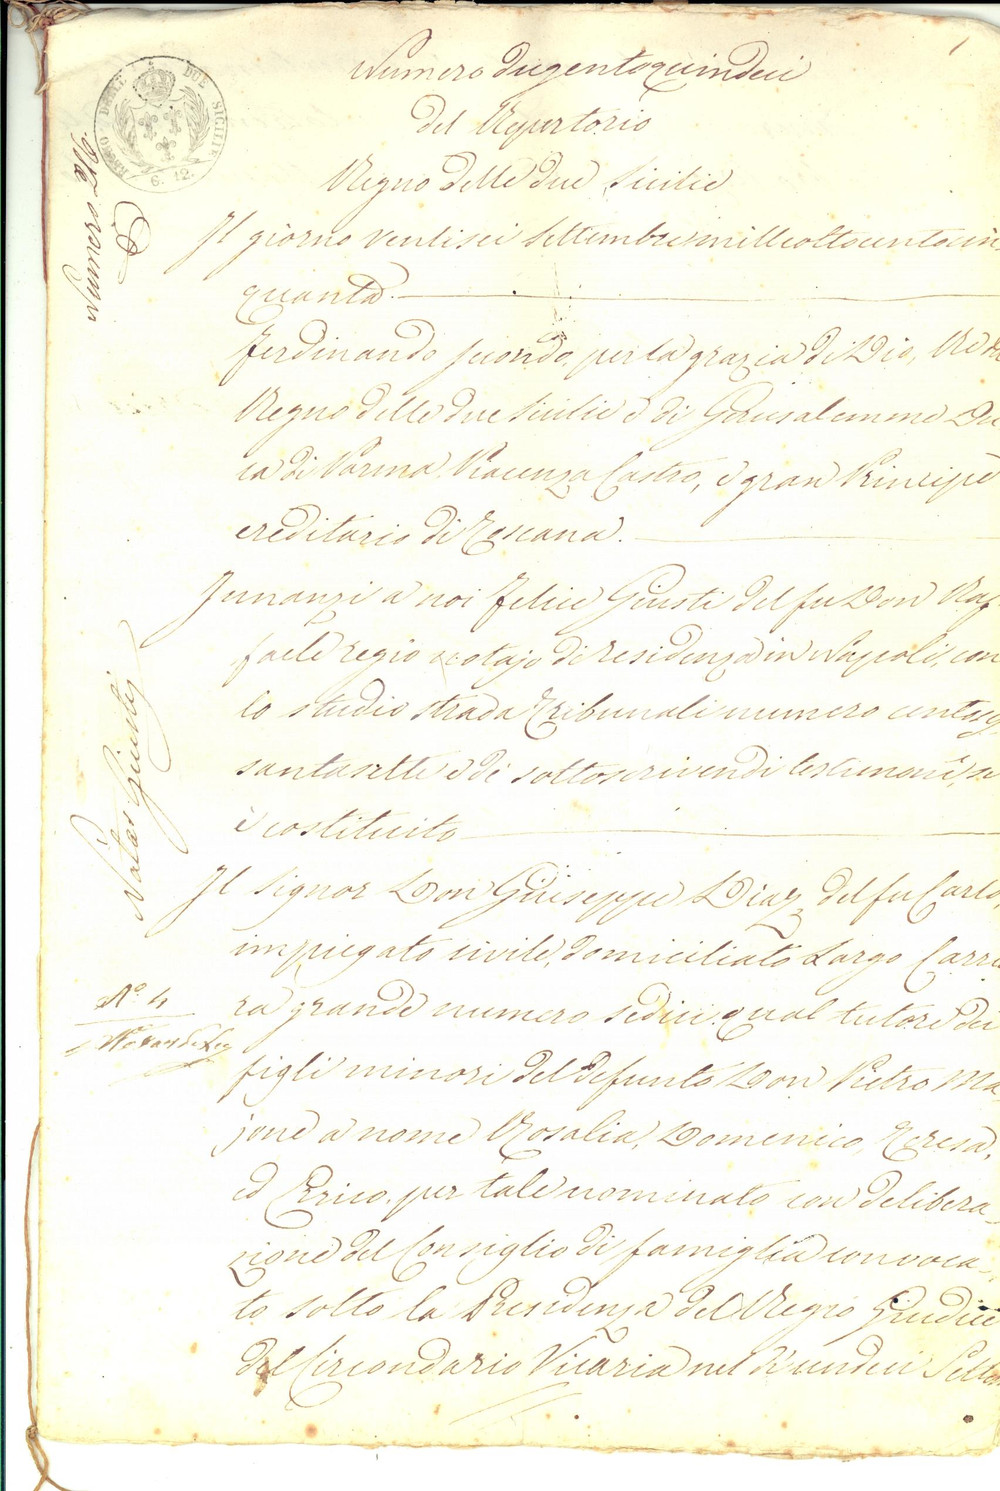 Numero dugentoquindici
del Repertorio
Regno delle due Sicilie
Il giorno ventisei Settembre milleottocentocin
quanta.
Ferdinando secondo per la grazia di Dio, Re del
Regno delle due Sicilie e di Gerusalemme Du
ca di Parma Piacenza Castro, e gran Principe
ereditario di Toscana.
Innanzi a noi Felice Giusti del fu Don Raf
faele regio notajo di residenza in Napoli, con
lo studio strada Tribunali numero centoses
santasette e de' sottoscrivendi testimoni, si
è costituito
Il Signor Don Giuseppe Diaz del fu Carlo,
impiegato civile, domiciliato Largo Carrie
ra grande numero sedici qual tutore dei
figli minori del defunto Don Pietro Ma-
jone a nome Rosalia, Domenico, Teresa,
ed Errico per tale nominato con delibera-
zione del Consiglio di famiglia convoca-
to sotto la Presidenza del Regio Giudice
del Circondario Vicaria nel dì undici Settem
REGNO DELLE DUE SICILIE
G. 12.
Numero
Notar Giusti
N.° 4